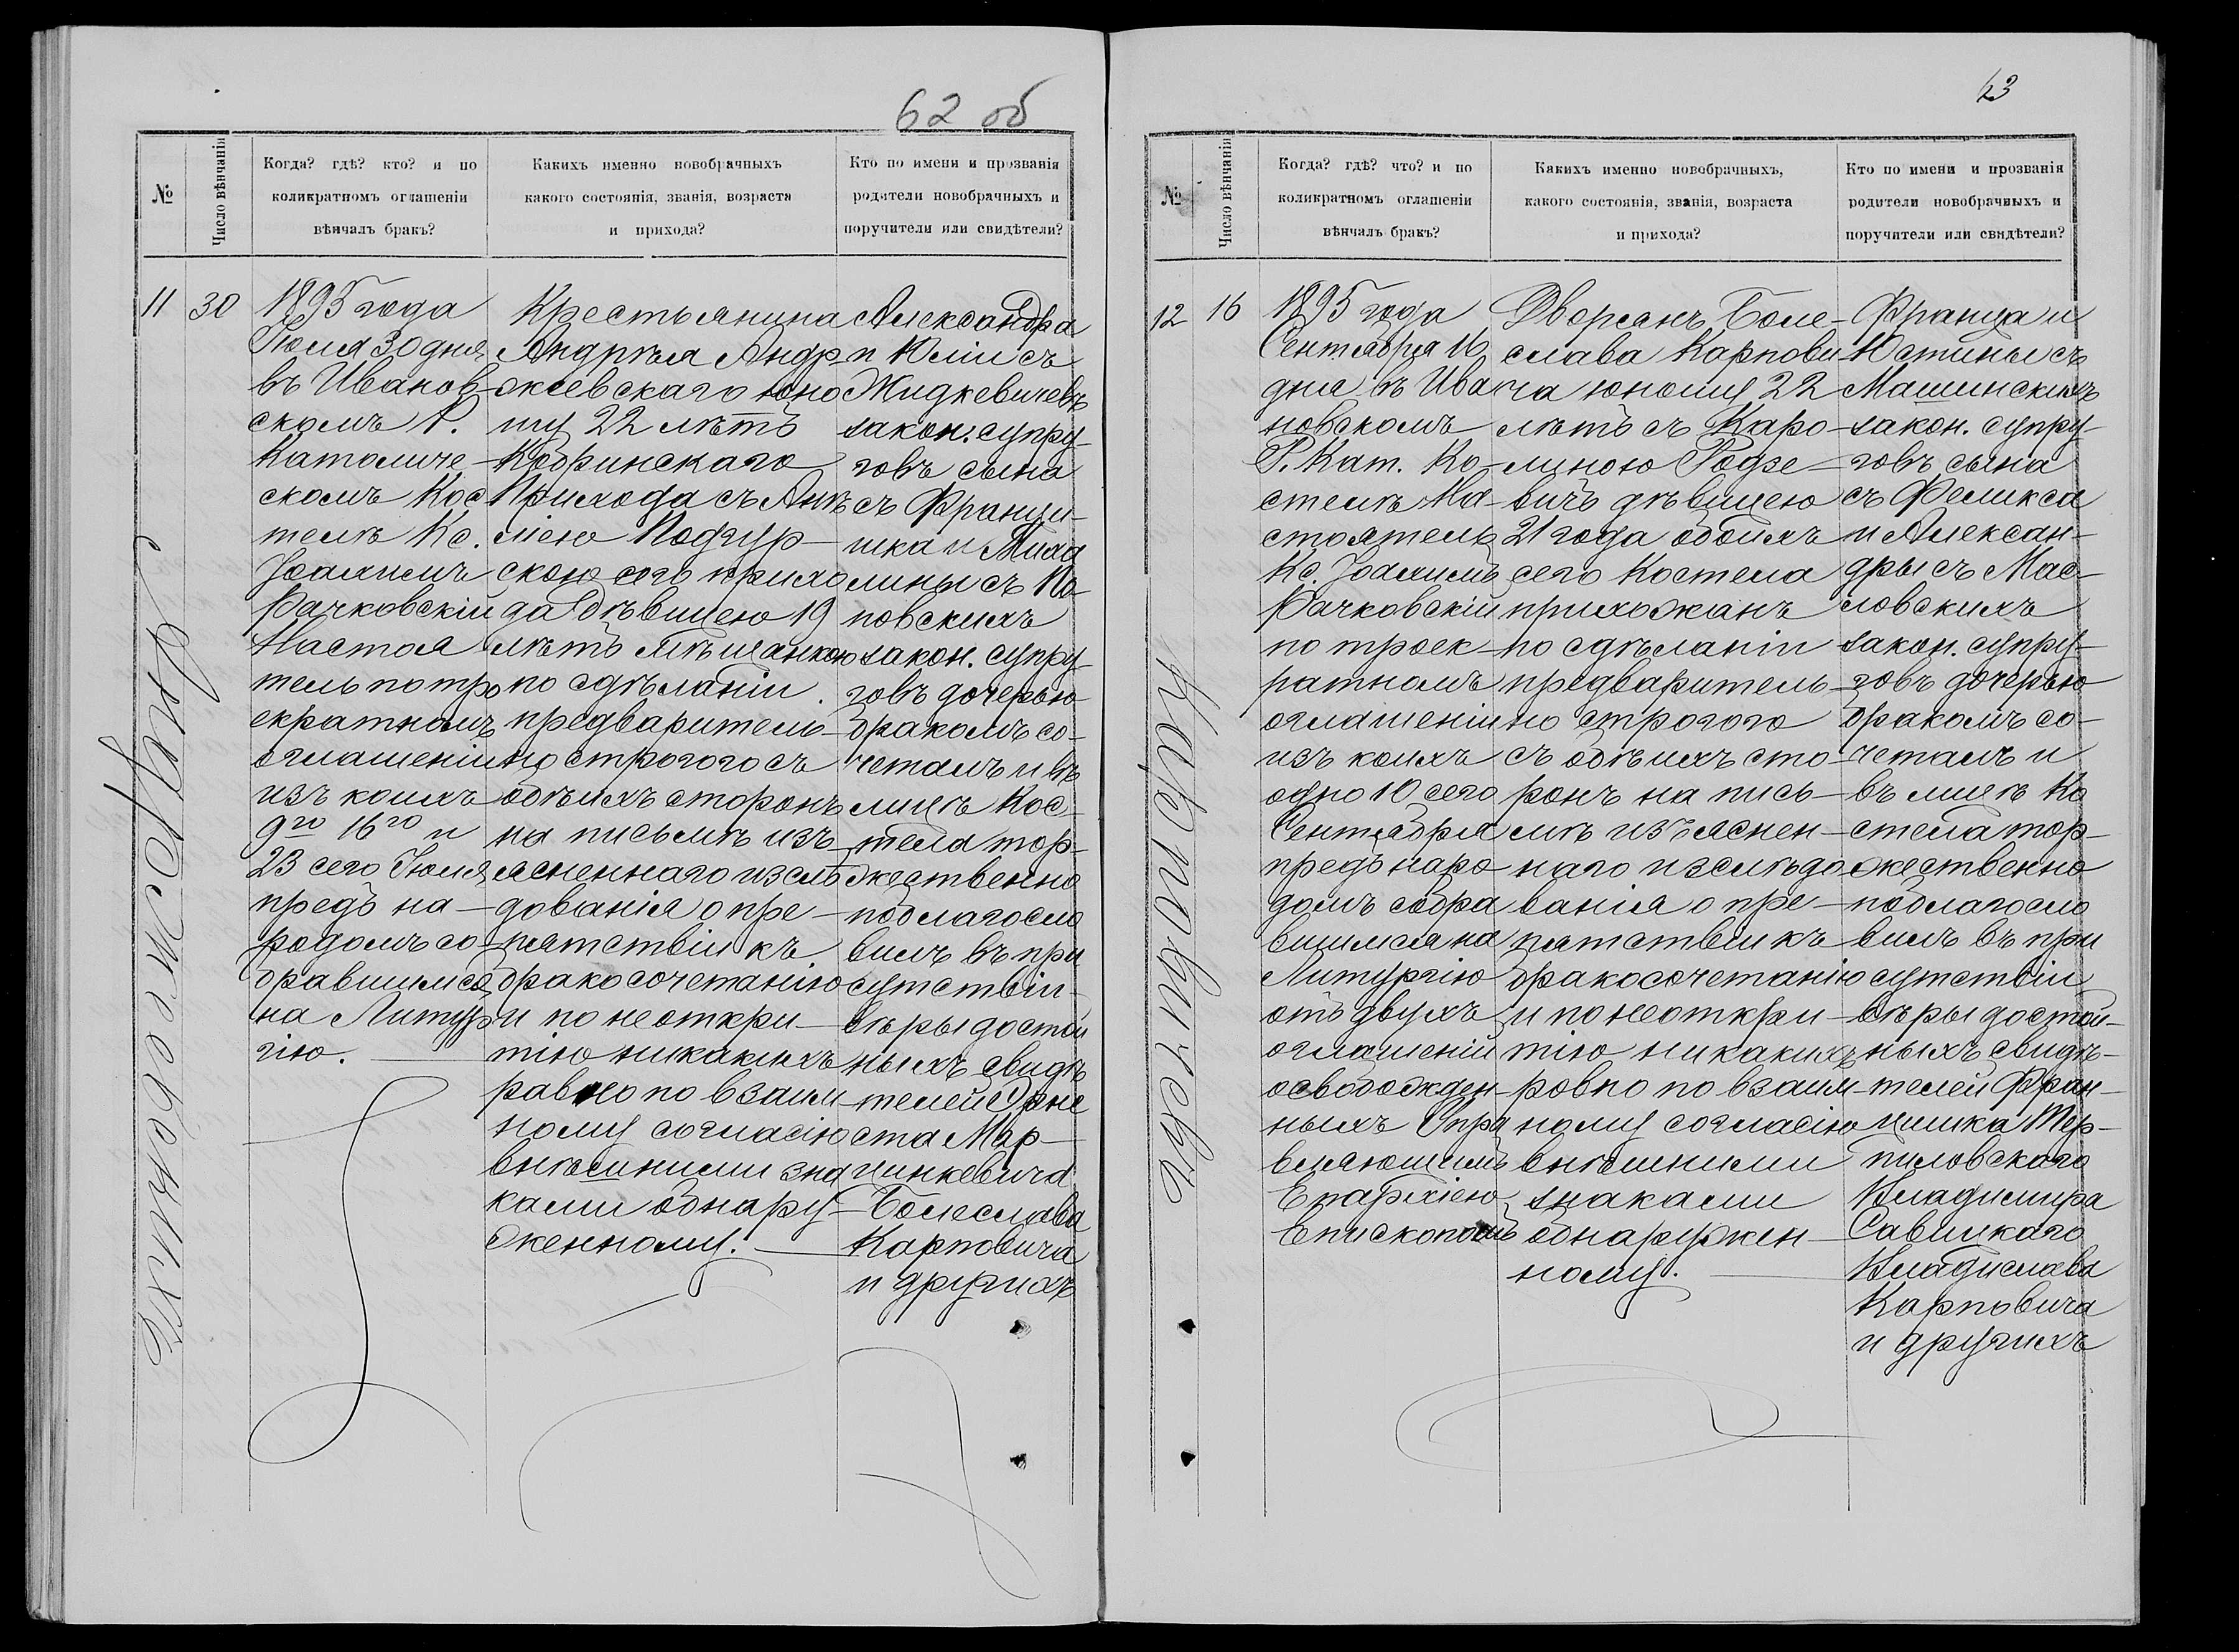 62 об
№
Число вѣнчанія
Когда? гдѣ? кто? и по
коликратномъ оглашеніи
вѣнчалъ бракъ?
Какихъ именно новобрачныхъ
какого состоянія, званія, возраста
и прихода?
Кто по имени и прозванія
родители новобрачныхъ и
поручители или свидѣтели?
11
30
1895 года
Іюля 30 дня
въ Иванов-
скомъ Р.
Католиче-
скомъ Кос
телѣ Кс.
Іоахимъ
Рачковскій
Настоя
тель по тро
екратномъ
оглашеніи
изъ коихъ
9го 16го и
23 сего Іюля
предъ на-
родомъ со-
бравшимся
на Литур
гію.
Крестьянина
Андрея Андр
жеевскаго юно
шу 22 лѣтъ
Кобринскаго
Прихода съ Ami
ліею Подгур-
скою сего прихо
да дѣвицею 19
лѣтъ мѣщанкою
по сдѣланіи
предваритель-
но строгого съ
обѣихъ сторонъ
на письмѣ изъ
ясненнаго изслѣ
дованія о пре-
пятствіи къ
бракосочетанію
и по неоткри-
тію никакихъ
равно по взаим
ному согласію
внѣшними зна
ками обнару-
женному.
Александра
и Юліи съ
Жидкевичевъ
закон. супру-
говъ сына
съ Франци-
шка и Миха
лины съ По-
повскихъ
закон. супру-
говъ дочерью
бракомъ со-
четалъ и въ
лицѣ Кос-
тела тор-
жественно
поблагосло
вилъ въ при
сутствіи
вѣры достой
ныхъ свидѣ
телей Эрне
ста Мар-
цинкевича
Болеслава
Карповича
и другихъ
Андржеевскихъ
63
№
Число вѣнчанія
Когда? гдѣ? что? и по
коликратномъ оглашеніи
вѣнчалъ бракъ?
Какихъ именно новобрачныхъ,
какого состоянія, званія, возраста
и прихода?
Кто по имени и прозванія
родители новобрачныхъ и
поручители или свидѣтели?
12
16
1895 года
Сентября 16
дня въ Ива
новскомъ
Р. Кат. Ко-
стелѣ На-
стоятель
Кс. Іоахимъ
Рачковскій
по троек-
ратномъ
оглашеніи
изъ коихъ
одно 10 сего
Сентября
предъ наро
домъ собра
вшимся на
Литургію
отъ двухъ
оглашеній
освобожден-
ныхъ Упра
вляющимъ
Епархіею
Епископомъ
Дворянъ Боле-
слава Карпови
ча юношу 22
лѣтъ съ Каро-
линою Родзе-
вичъ дѣвицею
21 года обоихъ
сего Костела
прихожанъ
по сдѣланіи
предваритель-
но строгого
съ обѣихъ сто-
ронъ на пись-
мѣ изъяснен-
наго изслѣдо
ванія о пре-
пятствіи къ
бракосочетанію
и по неоткри-
тію никакихъ
ровно по взаим-
ному согласію
внѣшними
знаками
обнаружен-
ному.
Франца и
Юстины съ
Машинскихъ
закон. супру-
говъ сына
съ Феликса
и Алексан-
дры съ Мас-
ловскихъ
закон. супру-
говъ дочерью
бракомъ со-
четалъ и
въ лицѣ Ко
стела тор-
жественно
поблагосло
вилъ въ при
сутствіи
вѣры достой-
ныхъ свидѣ-
телей Фран-
цишка Тер-
пиловского
Владимира
Савицкаго
Владислава
Карповича
и другихъ
Карповичевъ